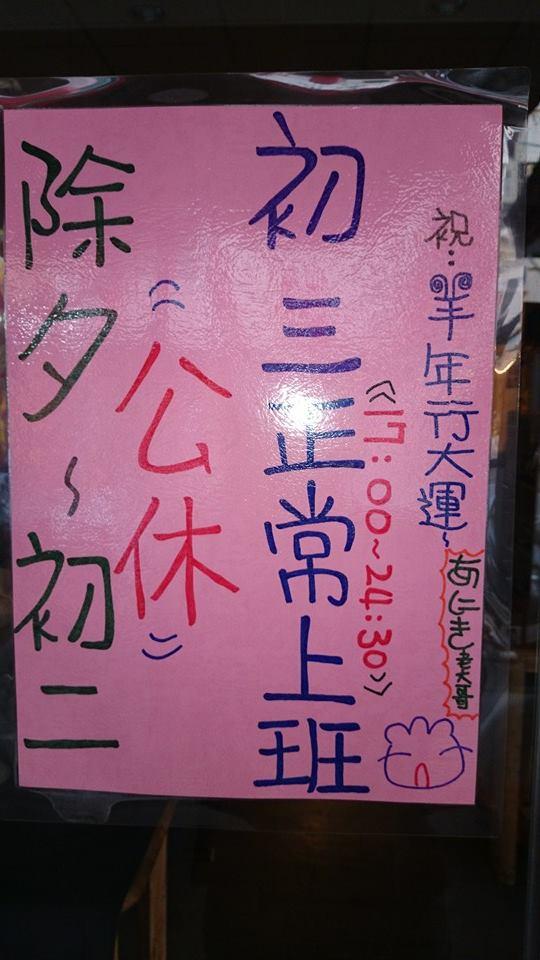 除夕~初二
《公休》
初三正常上班
《17:00~24:30》
祝:羊年行大運~
あにき大哥